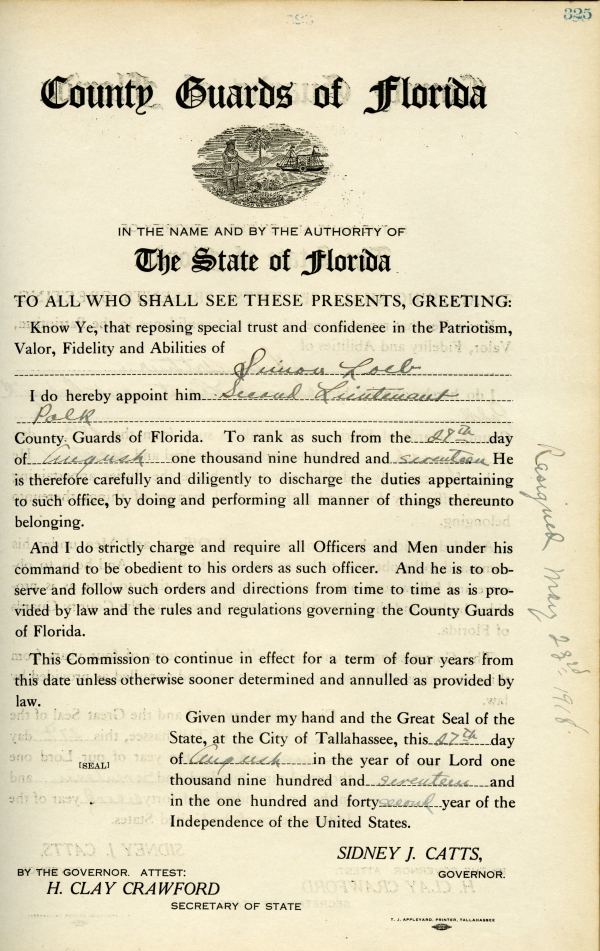 325
County Guards of Florida
IN THE NAME AND BY THE AUTHORITY OF
The State of Florida
TO ALL WHO SHALL SEE THESE PRESENTS, GREETING:
Know Ye, that reposing special trust and confidence in the Patriotism,
Valor, Fidelity and Abilities of
Simon Loeb
I do hereby appoint him Second Lieutenant
Polk
County Guards of Florida. To rank as such from the 27th day
of August one thousand nine hundred and seventeen He
is therefore carefully and diligently to discharge the duties appertaining
to such office, by doing and performing all manner of things thereunto
belonging.
And I do strictly charge and require all Officers and Men under his
command to be obedient to his orders as such officer. And he is to ob-
serve and follow such orders and directions from time to time as is pro-
vided by law and the rules and regulations governing the County Guards
of Florida.
This Commission to continue in effect for a term of four years from
this date unless otherwise sooner determined and annulled as provided by
law.
Given under my hand and the Great Seal of the
State, at the City of Tallahassee, this 27th day
[SEAL] of August in the year of our Lord one
thousand nine hundred and seventeen and
in the one hundred and forty second year of the
Independence of the United States.
SIDNEY J. CATTS,
BY THE GOVERNOR. ATTEST: GOVERNOR.
H. CLAY CRAWFORD
SECRETARY OF STATE
T. J. APPLEYARD, PRINTER, TALLAHASSEE
Resigned May 23rd 1918.